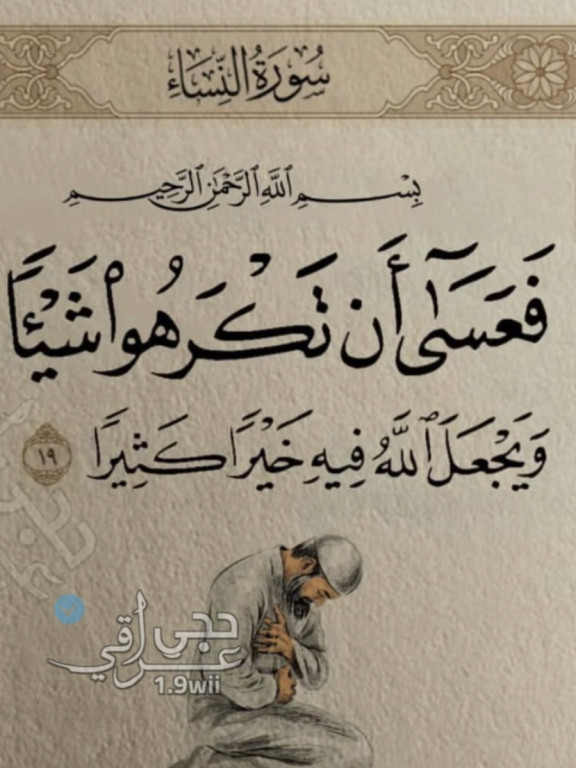 سُورَةُ النِّسَاءِ
بِسْمِ ٱللَّهِ ٱلرَّحْمَٰنِ ٱلرَّحِيمِ
فَعَسَىٰٓ أَن تَكْرَهُوا۟ شَيْـًٔا
وَيَجْعَلَ ٱللَّهُ فِيهِ خَيْرًا كَثِيرًا ١٩
حجي عراقي
1.9wii